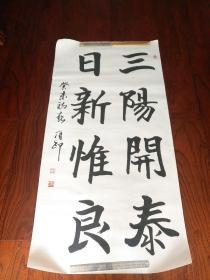 三陽開泰
日新惟良
癸未初春